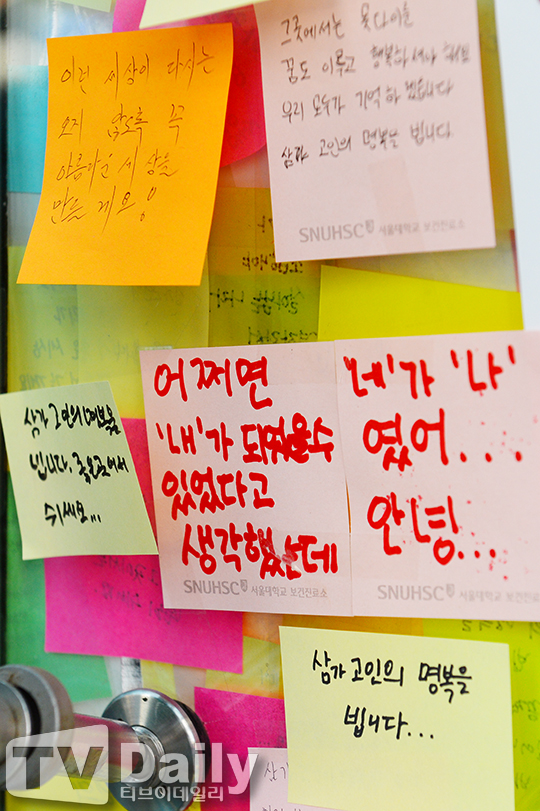 이런 세상이 다시는
오지 않도록 꼭
아름다운 세상을
만들게요!
그곳에서는 못다이룬
꿈도 이루고 행복하셔야 해요
우리 모두가 기억하겠습니다
삼가 고인의 명복을 빕니다
SNUHSC 서울대학교 보건진료소
삼가 고인의 명복을
빕니다. 좋은곳에서
쉬세요...
어쩌면
'내'가 되었을수
있었다고
생각했는데
SNUHSC 서울대학교 보건진료소
'네'가 '나'
였어...
안녕...
SNUHSC 서울대학교 보건진료소
삼가 고인의 명복을
빕니다...
삼가
TV Daily
티브이데일리